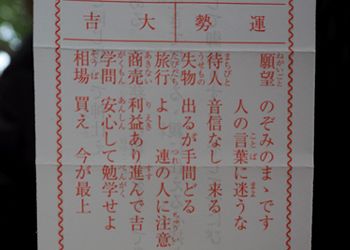 運勢 大吉
願望 のぞみのまゝです
人の言葉に迷うな
待人 音信なし 来る
失物 出るが手間どる
旅行 よし 連の人に注意
商売 利益あり進んで吉
学問 安心して勉学せよ
相場 買え 今が最上